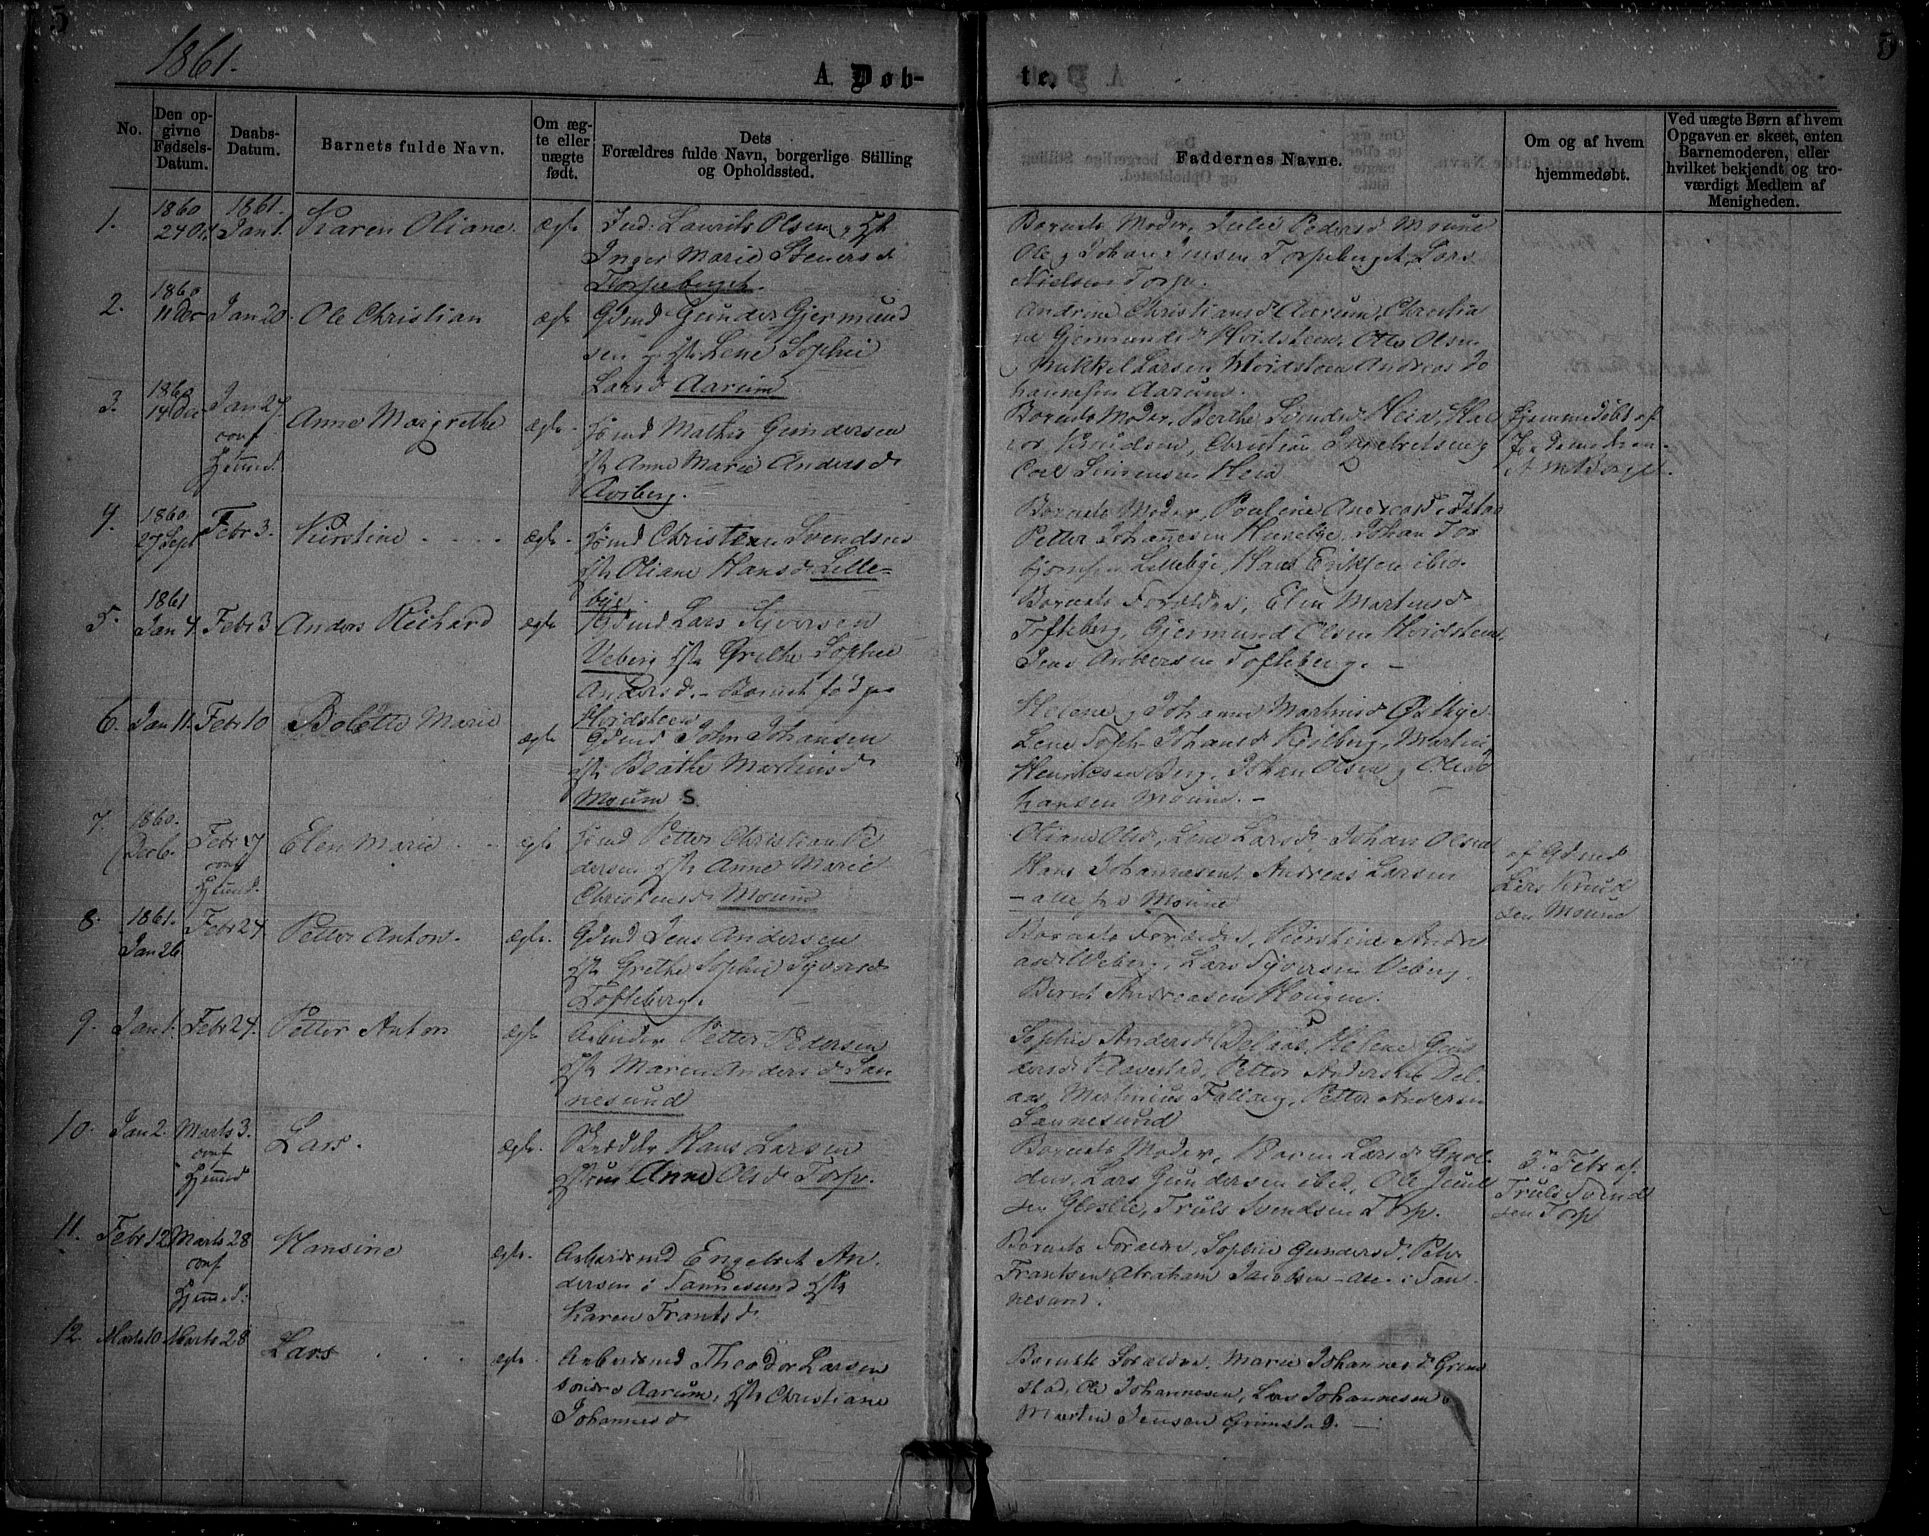 5
5
1861.
A. Døb-
te.
No.
Den op-
givne
Fødsels-
Datum.
Daabs-
Datum.
Barnets fulde Navn.
Om æg-
te eller
uægte
født.
Dets
Forældres fulde Navn, borgerlige Stilling
og Opholdssted.
Faddernes Navne.
Om og af hvem
hjemmedøbt.
Ved uægte Børn af hvem
Opgaven er skeet, enten
Barnemoderen, eller
hvilket bekjendt og tro-
værdigt Medlem af
Menigheden.
1.
1860
24 Oct.
1861.
Jan 1.
Karen Oliane.
ægte
Ind. Laurits Olsen og Hst
Inger Marie Steners d
Torpeberget.
Barnets Moder, Julie Peders d Moum
Ole og Johan Jensen Torpeberget, Lars
Nielsen Torp.
2.
1860
11 Dec
Jan 20.
Ole Christian
ægte
Gdmd Gunder Gjermund
sen og Hst Lene Sophie
Lars d Aarum
Andrine Christians d Aarum, Christia
ne Gjermunds d Hvidsteen, Otto Olsen
og Mikkel Larsen Hvidsteen Andreas Jo
hannesen Aarum.
3.
1860
14 Dec
Jan 27.
conf
Hjemmed.
Anne Margrethe
ægte
Hsmd Mathis Gundersen
Hst Anne Marie Anders d
Avsberg.
Barnets Moder, Berthe Svends d Heia, Hal
vor Knudsen, Christian Engebretsen og
Carl Simensen Heia
Hjemmedøbt af
Jordemoderen
A M Borge.
4.
1860
27 Sept
Febr 3.
Kirstine
ægte
Hsmd Christian Svendsen
Hst Oliane Hans d Lille-
bye.
Barnets Moder, Pouline Andreas d
Petter Johannesen Hunebye, Johan Tor
bjørnsen Lillebye, Hans Eriksen ibid.
5.
1861
Jan 4.
Febr 3
Anders Richard
ægte
Gdmd Lars Syversen
Veberg Hst Grethe Sophie
Anders d. – Barnet fød paa
Hvidsteen
Barnets Forældre, Elen Martens d
Tofteberg, Gjermund Olsen Hvidsteen,
Jens Andersen Tofteberg. –
6.
Jan 11.
Febr 10
Bolette Marie
ægte
Gdmd John Johansen
Hst Beathe Martins d
Moum S.
Helene og Johanne Martins d Østbye
Lene Soph. Johans d Kjølberg, Martin
Henriksen Berg, Johan Olsen og Ole Jo
hansen Moum. –
7.
1860.
Dec 6.
Febr 17
conf
Hjemmed.
Elen Marie
ægte
Hsmd Petter Christian Pe
dersen Hst Anne Marie
Christens d Moum
Oliane Ols d, Lene Lars d Johan Olsen
Hans Johannesen, Andreas Larsen
– alle fra Moum
af Gdmd
Lars Knud
sen Moum
8.
1861.
Jan 26
Febr 24
Petter Anton.
ægte.
Gdmd Jens Andersen
Hst Grethe Sophie Syvers d
Tofteberg.
Barnets Forældre, Kirstine Andre
as d Veberg, Lars Syversen Veberg,
Bernt Andreasen Haugen.
9.
Jan 1.
Febr 24.
Petter Anton
ægte
Arbeider Petter Pedersen
Hst Maren Anders d San
nesund
Sophie Anders d Delaas, Helene Gun
ders d Klavestad, Petter Andersen Del
aas, Martinius Fallang, Petter Andersen
Sannesund
10.
Jan 2.
Marts 3.
conf
Hjemmed
Lars.
ægte.
Skrædder Hans Larsen
Hstru Anne Ols d Torp.
Barnets Moder, Karen Lars d
Lars Gundersen ibid, Ole Jens
sen, Truls Svendsen Torp.
3. Febr af
Truls Svend
sen Torp
11.
Febr 12
Marts 28
conf
Hjemmed.
Hansine
ægte.
Arbeidsmd Engebret An
dersen i Sannesund Hst
Karen Frants d.
Barnets Forældre, Sophie Gunders d, Peter
Frantsen, Abraham Jacobsen – alle i San
nesund.
12.
Marts 10
Marts 28
Lars
ægte.
Arbeidsmd Theodor Larsen
søndre Aarum, Hst Christiane
Johannes d
Barnets Forældre. Marie Johannes d Grim
stad, Ole Johannesen, Lars Johannesen
Martin Jensen Grimstad. –